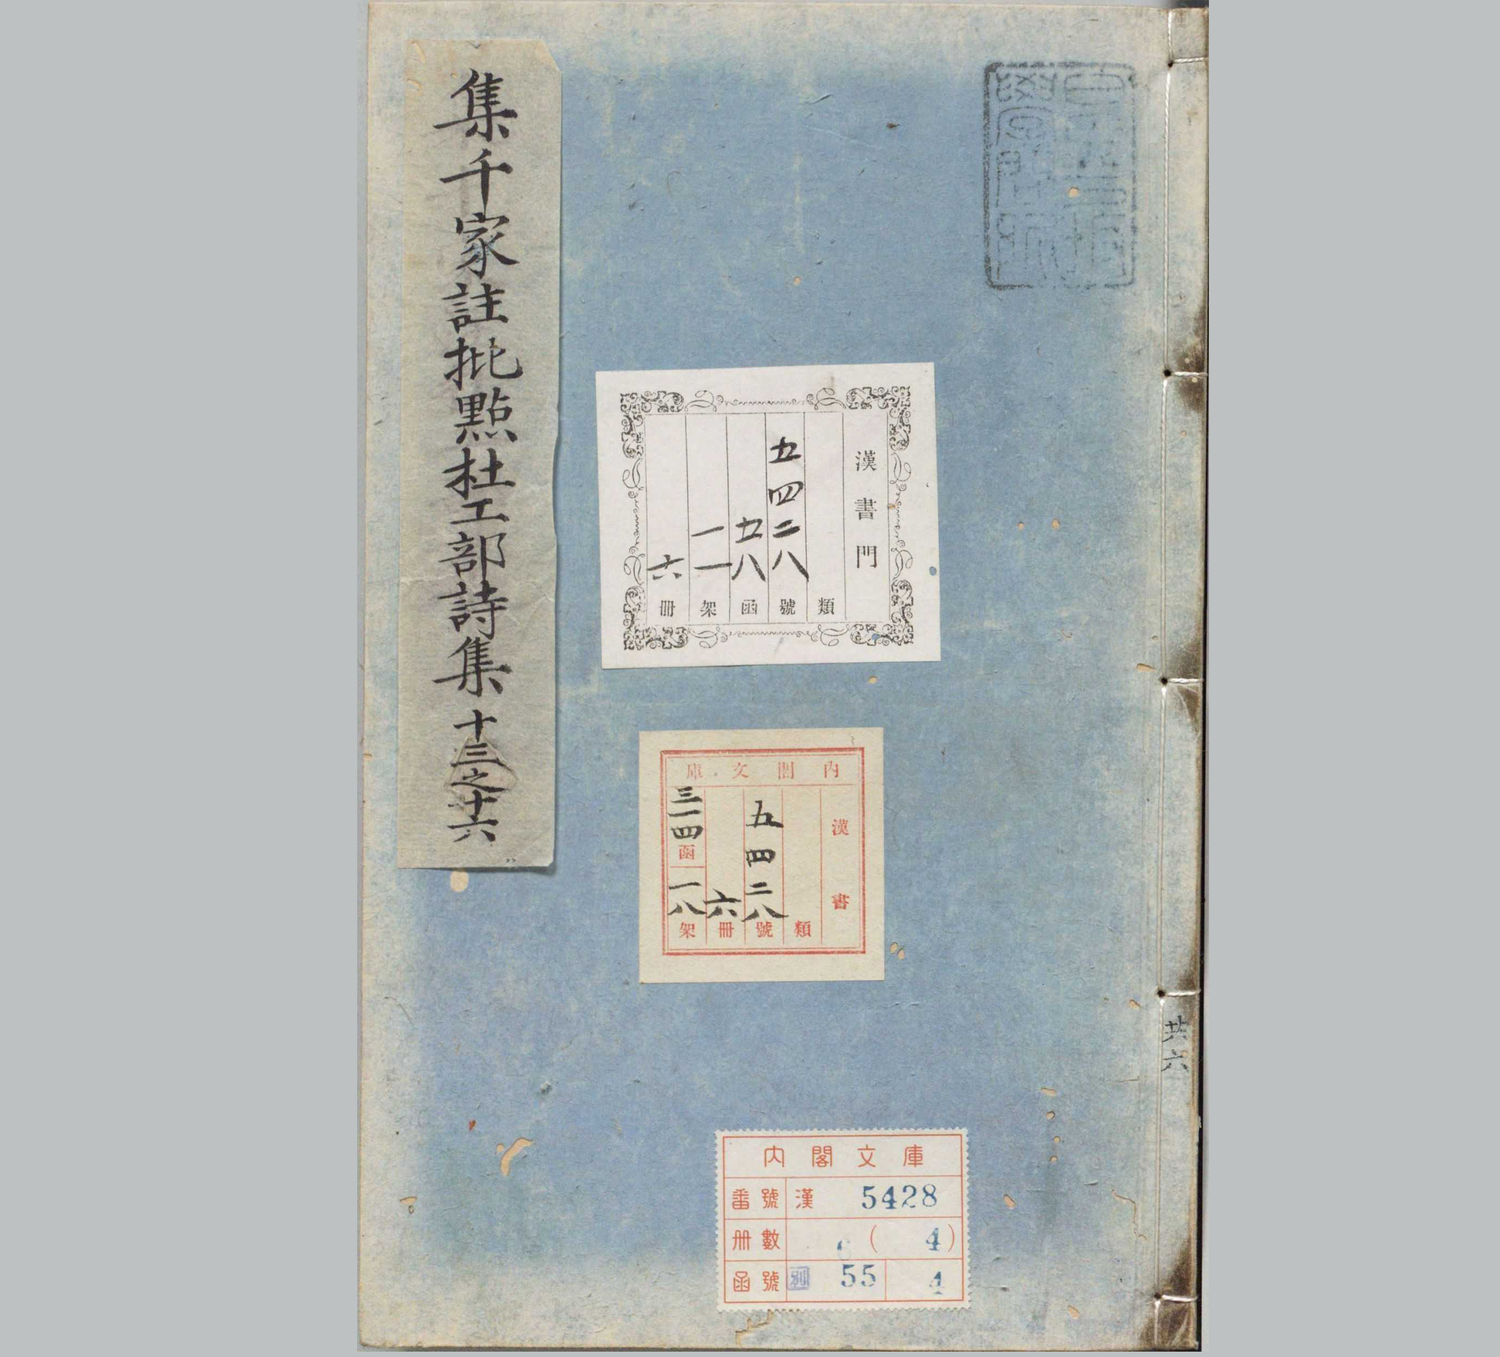 集千家註批點杜工部詩集 十三之十六
漢書門
類
五四二八號
五八函
一一架
六册
内閣文庫
漢書
類
五四二八號
六冊
三一四函
一八架
共六
内閣文庫
番號 漢 5428
册數 6 ( 4 )
函號 別 55 4